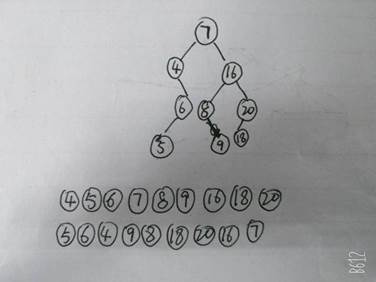 7
4 16
6 8 20
5 9 18
4 5 6 7 8 9 16 18 20
5 6 4 9 8 18 20 16 7
B612